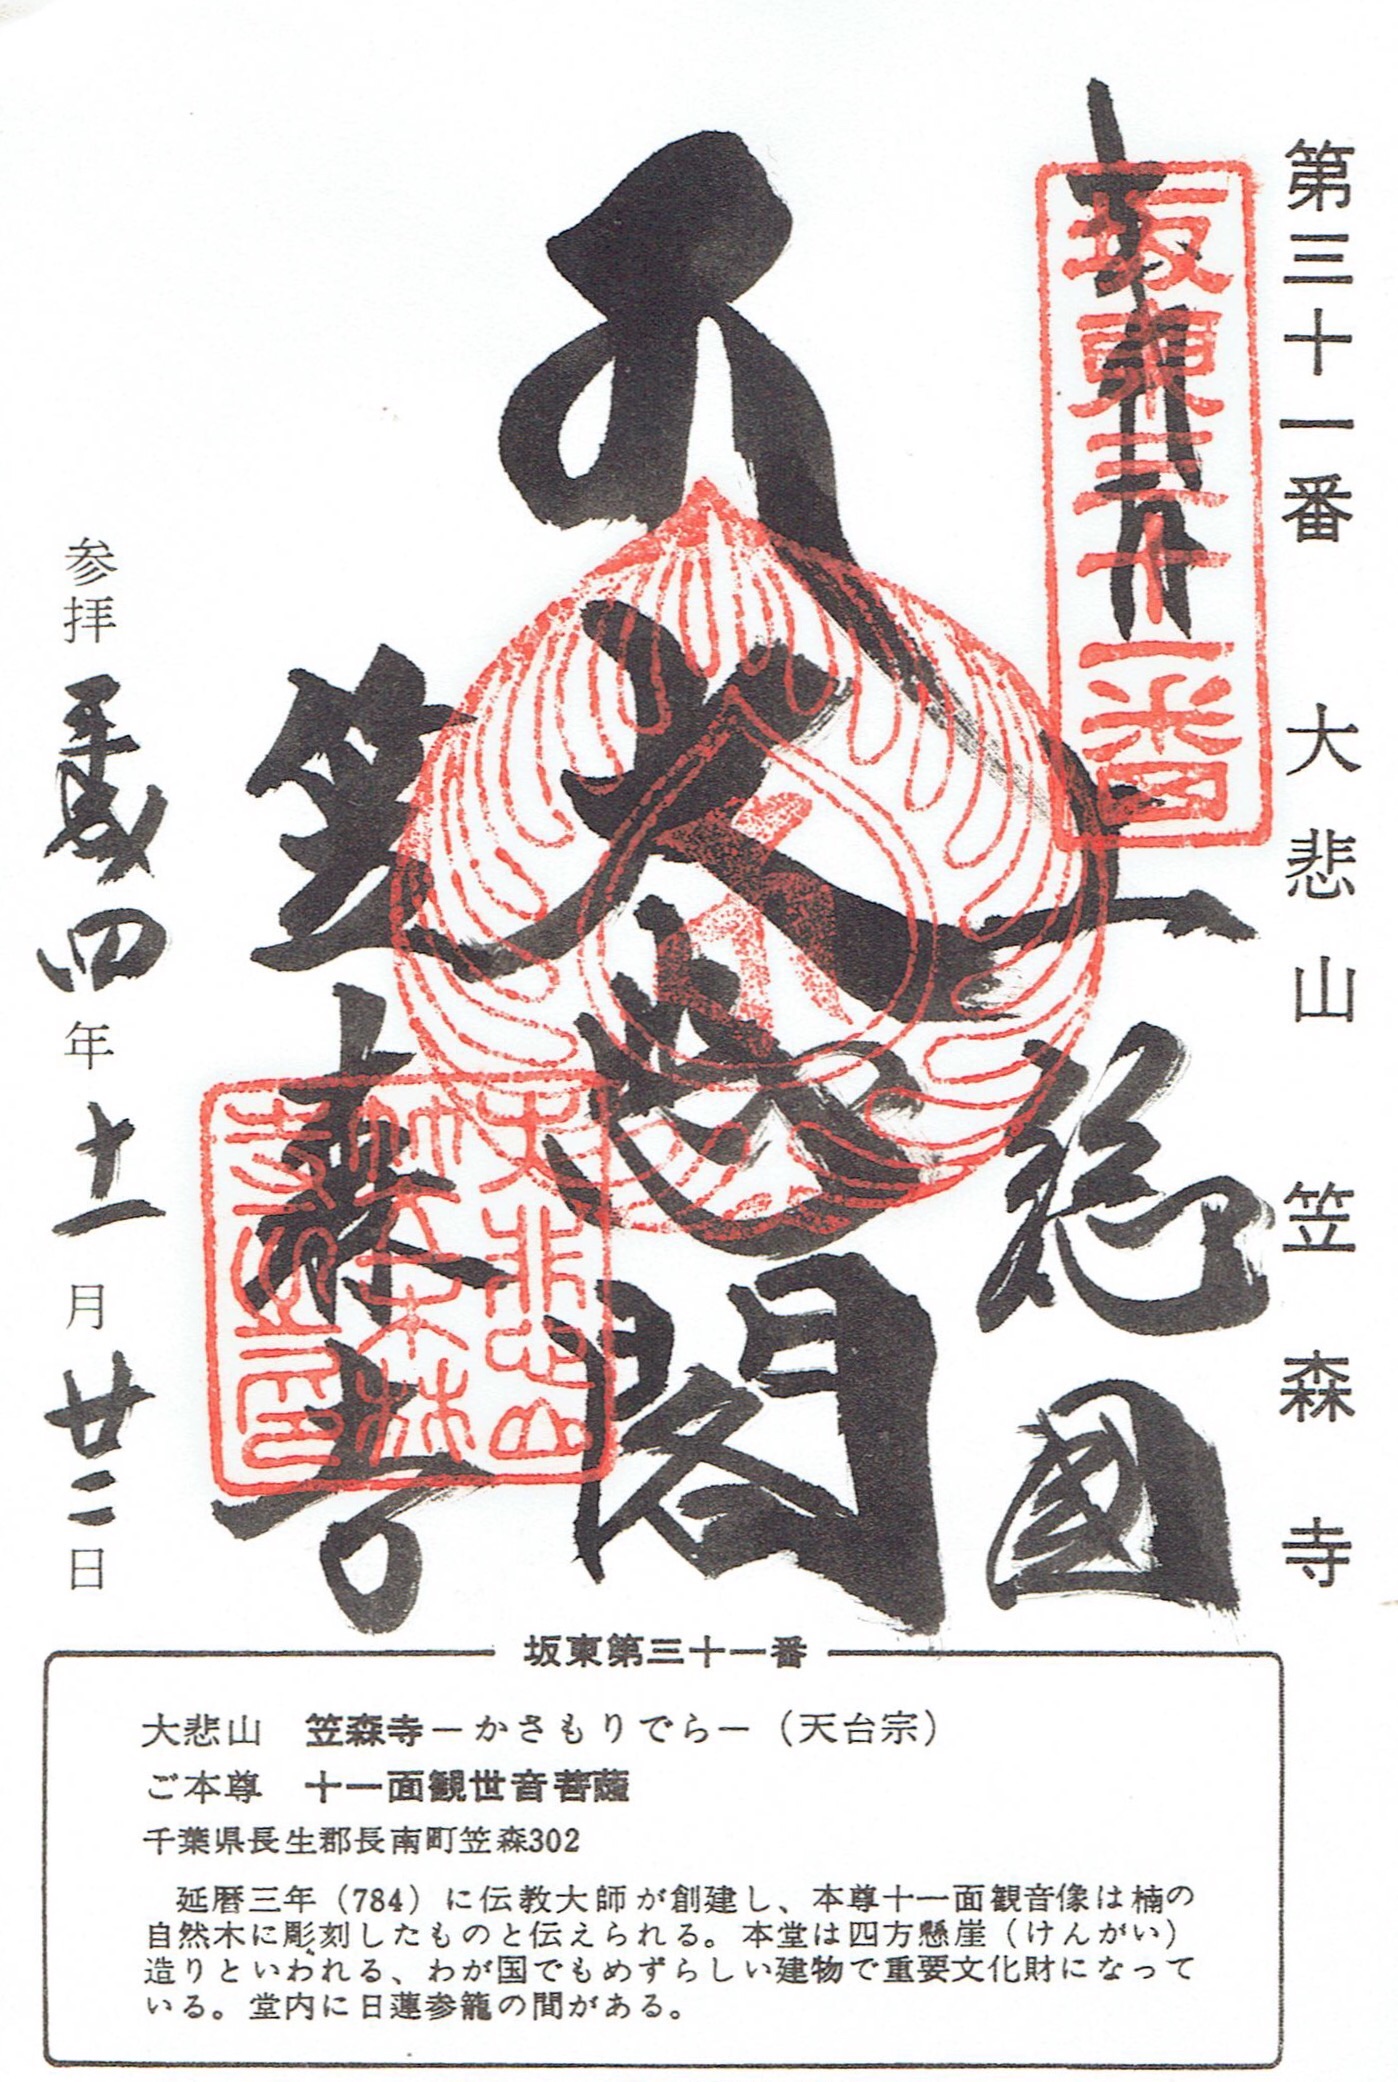 第三十一番 大悲山 笠森寺
坂東三十一番
上総國
大悲閣
笠森寺
大悲山
笠森
寺之印
参拝 平成四年十一月廿二日
坂東第三十一番
大悲山 笠森寺－かさもりでら－（天台宗）
ご本尊 十一面観世音菩薩
千葉県長生郡長南町笠森302
延暦三年（784）に伝教大師が創建し、本尊十一面観音像は楠の
自然木に彫刻したものと伝えられる。本堂は四方懸崖（けんがい）
造りといわれる、わが国でもめずらしい建物で重要文化財になって
いる。堂内に日蓮参籠の間がある。